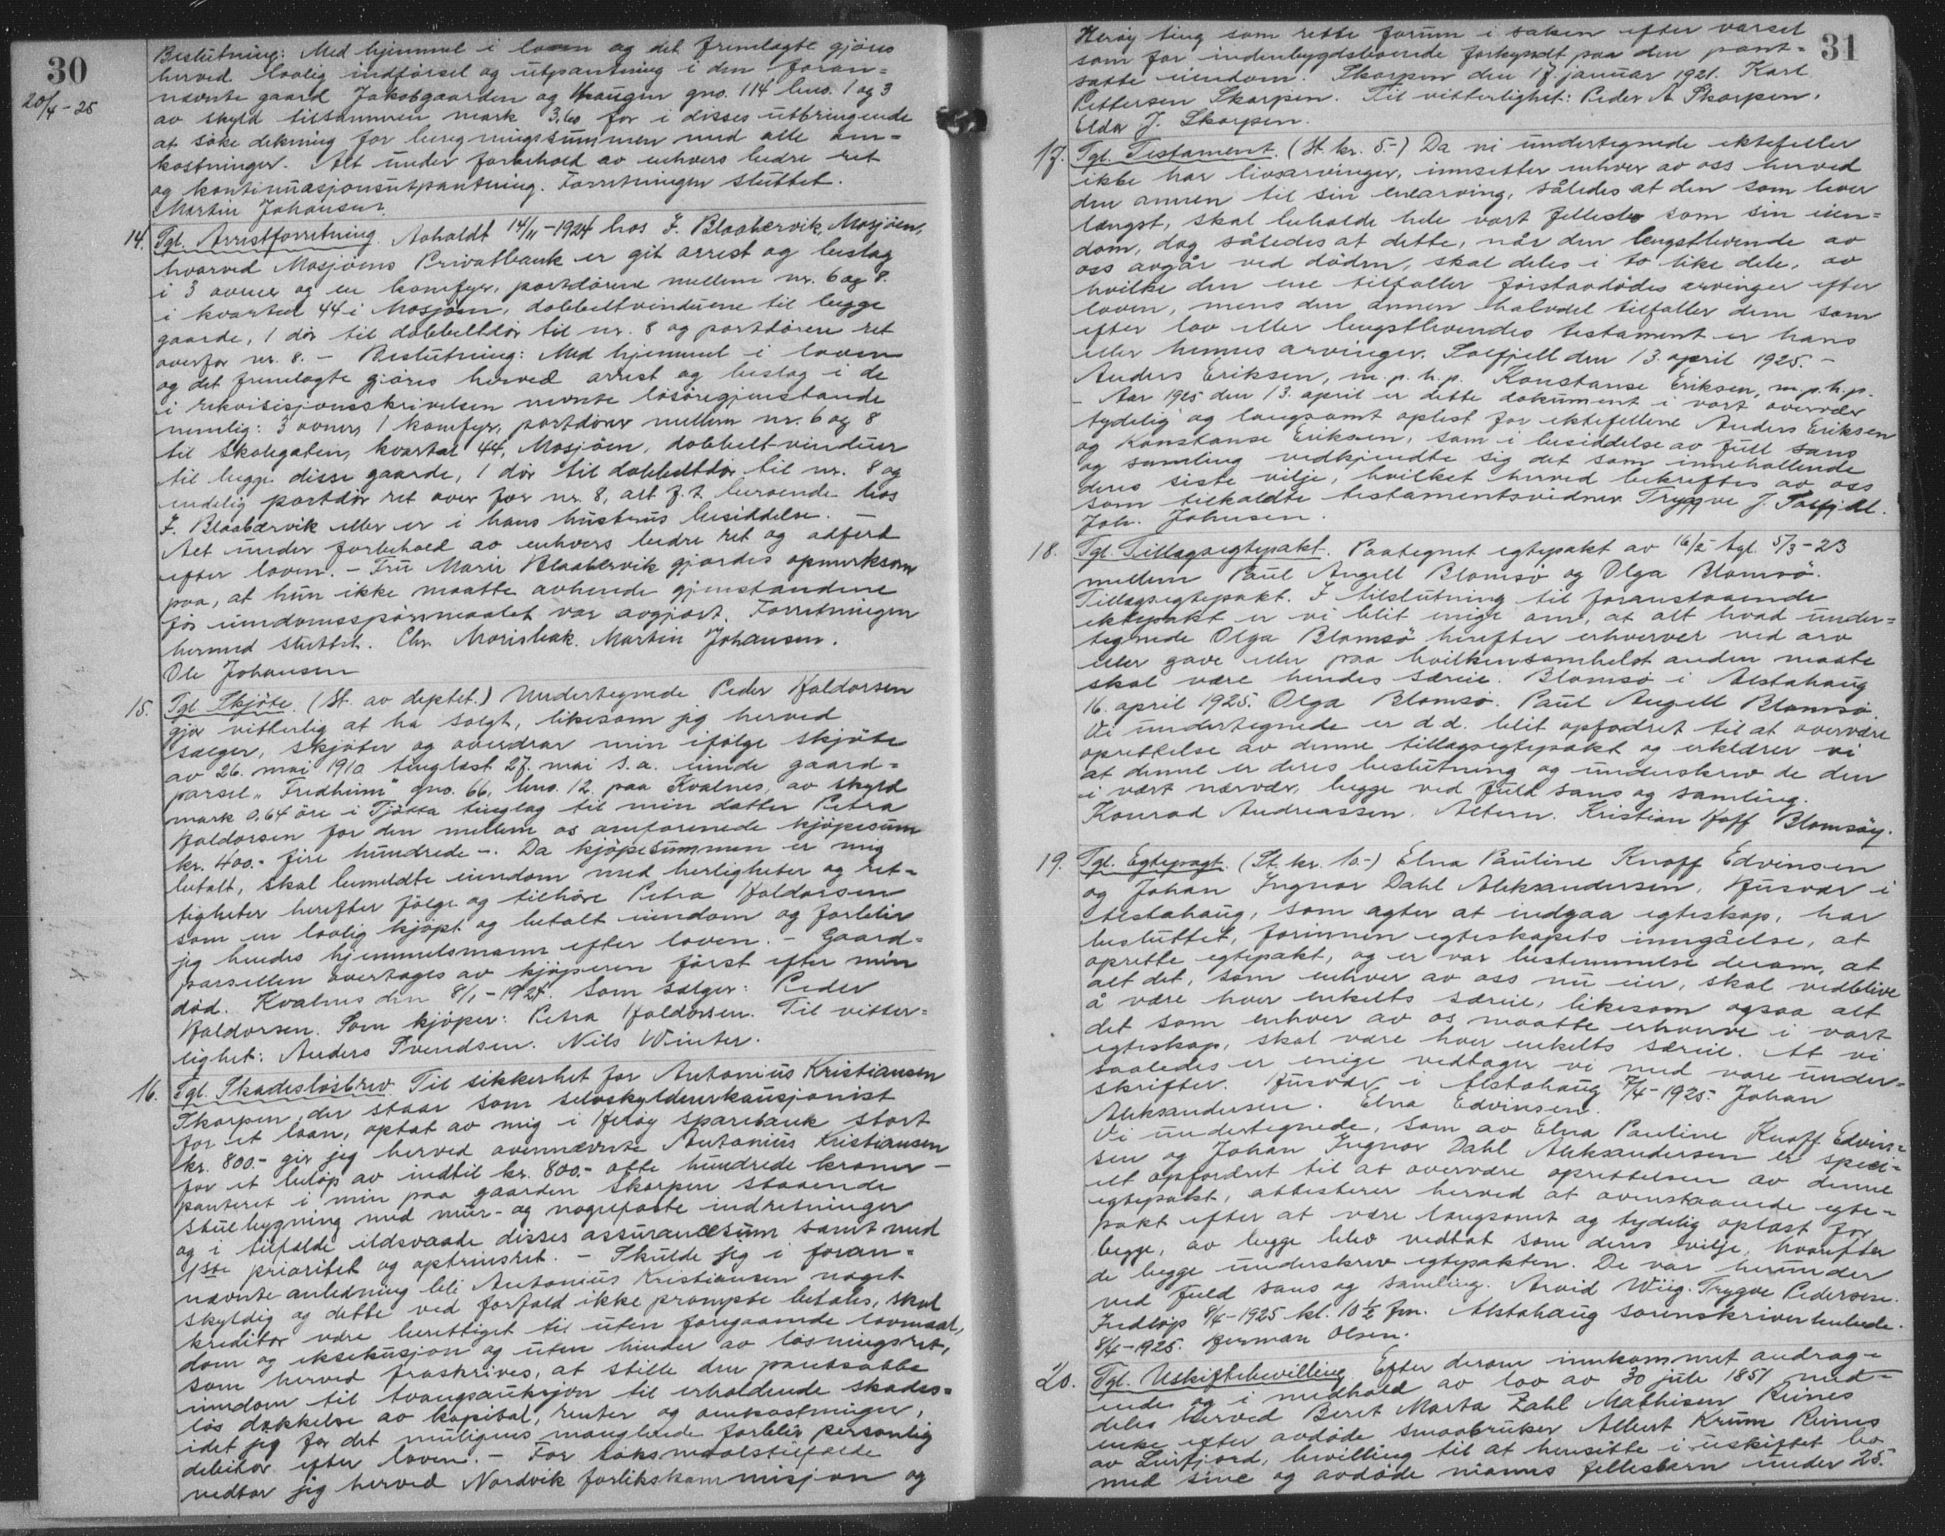 30
20/4-25
Beslutning: Med hjemmel i loven og det fremlagte gjöres
herved lovlig indförsel og utpantning i den foran=
nævnte gaard Jakobgaarden og Haugen gno. 114 bno. 1 og 3
av skyld tilsammen mark 3,60 for i disses utbringende
at söke dekning for beregningssummen med alle om=
kostninger. Alt under forbehold av enhvers bedre ret
og kontinuasjonsutpantning. Forretningen sluttet.
Martin Johansen.
14. Tgl. Arrestforretning. Avholdt 14/11-1924 hos F. Blaabærvik, Mosjöen,
hvorved Mosjöens Privatbank er git arrest og beslag
i 3 ovner og en komfyr, portdörene mellem nr. 6 og 8.
i kvartal 44 i Mosjöen, dobbeltvinduene til begge
gaarde, 1 dör til dobbeltdör til nr. 8 og portdören ret
overfor nr. 8. - Beslutning: Med hjemmel i loven
og det fremlagte gjöres herved arrest og beslag i de
i rekvisisjonsskrivelsen nevnte lösöregjenstande
nemlig: 3 ovner, 1 komfyr, portdörer mellem nr. 6 og 8
til Skolegaten, kvartal 44, Mosjöen, dobbelt-vinduer
til begge disse gaarde, 1 dör til dobbeltdör til nr. 8 og
endelig portdör ret over for nr. 8, alt f.t. beroende hos
F. Blaabærvik eller er i hans hustrus besiddelse. -
Alt under forbehold av enhvers bedre ret og adferd
efter loven. - Fru Marie Blaabervik gjordes opmerksom
paa, at hun ikke maatte avhende gjenstandene
för eiendomsspörsmaalet var avgjort. Forretningen
hermed sluttet. Chr. Marisbak. Martin Johansen.
Ole Johansen
15. Tgl. Skjöte. (St. av deptet.) Undertegnede Peder Haldorsen
gjör vitterlig at ha solgt, likesom jeg herved
sælger, skjöter og overdrar min ifölge skjöte
av 26. mai 1910 tinglæst 27. mai s.a. eiende gaard=
parsel „Fredheim" gno. 66, bno. 12. paa Kvalnes, av skyld
mark 0,64 öre i Tjötta tinglag til min datter Petra
Haldorsen for den mellem os omforenede kjöpesum
kr. 400.- fire hundrede -. Da kjöpesummen er mig
betalt, skal bemeldte eiendom med herligheter og ret=
tigheter herefter fölge og tilhöre Petra Haldorsen
som en lovlig kjöpt og betalt eiendom og forblir
jeg hendes hjemmelsmann efter loven. - Gaard=
parsellen overtages av kjöperen först efter min
död. Kvalnes den 8/1-1924. Som sælger: Peder
Haldorsen. Som kjöper: Petra Haldorsen. Til vitter=
lighet: Anders Svendsen. Nils Winter.
16. Tgl. Skadeslösbrev. Til sikkerhet for Antonius Kristiansen
Skorpen, der staar som selvskyldnerkausjonist
for et laan, optat av mig i Heröy sparebank stort
kr. 800.- gir jeg herved ovennævnte Antonius Kristiansen
for et belöp av indtil kr. 800.- otte hundrede kroner -
panteret i min paa gaarden Skorpen staaende
stuebygning med mur- og nagelfaste indretninger
og i tilfælde ildsvaade disses assurancesum samt med
1ste prioritet og optrinsret. - Skulde jeg i foran=
nævnte anledning bli Antonius Kristiansen noget
skyldig og dette ved forfald ikke prompte betales, skal
kreditor være berettiget til uten foregaaende lovmaal,
dom og eksekusjon og uten hinder av lösningsret,
som herved fraskrives, at stille den pantsatte
eiendom til tvangsauksjon til erholdende skades=
lös dekkelse av kapital, renter og omkostninger,
idet jeg for det muligens manglende forblir personlig
debitor efter loven. - For söksmaalstilfælde
vedtar jeg herved Nordvik forlikskommisjon og
31
Heröy ting som rette forum i saken efter varsel
som for indenbygdsboende forkyndt paa den pant=
satte eiendom. Skorpen den 17. januar 1921. Karl
Pettersen Skorpen. Til vitterlighet: Peder A Skorpen.
Eldor J. Skorpen.
17. Tgl. Testament. (St. kr. 5-) Da vi undertegnede ektefeller
ikke har livsarvinger, innsetter enhver av oss herved
den annen til sin enearving, således at den som lever
længst, skal beholde hele vort fellesbo som sin eien=
dom, dog således at dette, når den lengstlevende av
oss avgår ved döden, skal deles i to like dele, av
hvilke den ene tilfaller förstavdödes arvinger efter
loven, mens den annen halvdel tilfaller dem som
efter lov eller lengstlevendes testament er hans
eller hennes arvinger. Solfjell den 13. april 1925. -
Anders Eriksen, m.p.h.p. Konstanse Eriksen, m.p.h.p.
- Aar 1925 den 13. april er dette dokument i vort overvær
tydelig og langsomt oplest for ektefellene Anders Eriksen
og Konstanse Eriksen, som i besiddelse av full sans
og samling vedkjendte sig det som inneholdende
deres siste vilje, hvilket herved bekreftes av oss
som tilkaldte testamentsvidner Tryggve J. Solfjell.
Joh. Johnsen.
18. Tgl. Tillægsegtepakt. Paategnet egtepakt av 16/2 tgl. 5/3-23
mellem Paul Angell Blomsö og Olga Blomsö.
Tillægsegtepakt. I tilslutning til foranstaaende
ektepakt er vi blit enige om, at alt hvad under=
tegnede Olga Blomsö herefter erhverver ved arv
eller gave eller paa hvilkensomhelst anden maate
skal være hendes særeie. Blomsö i Alstahaug
16. april 1925. Olga Blomsö. Paul Angell Blomsö.
Vi undertegnede er d.d. blit opfodret til at overvære
oprettelse av denne tillægsegtepakt og erklærer vi
at denne er deres beslutning og underskrev de den
i vært nærvær, begge ved full sans og samling.
Konrad Andreassen. Altern. Kristian Hoff Blomsöy.
19. Tgl. Egtepagt. (St. kr. 10-) Elna Pauline Knoff Edvinsen
og Johan Ingvar Dahl Aleksandersen, Husvær i
Alstahaug, som agter at indgaa egteskap, har
besluttet, forinnen egteskapets inngåelse, at
oprette egtepakt, og er vor bestemmelse derom, at
alt det, som enhver av oss nu eier, skal vedblive
å være hver enkelts særeie, likesom ogsaa alt
det som enhver av os maatte erhverve i vort
egteskap, skal være hver enkelts særeie. At vi
saaledes er enige vedtager vi med vore under=
skrifter. Husvær i Alstahaug 7/4-1925. Johan
Aleksandersen. Elna Edvinsen.
Vi undertegnede, som av Elna Pauline Knoff Edvin=
sen og Johan Ingvar Dahl Aleksandersen er speci=
elt opfordret til at overvære oprettelsen av denne
egtepakt, attesterer herved at ovenstaaende egte=
pakt efter at være langsomt og tydelig oplæst for
begge, av begge blev vedtat som deres vilje, hvorefter
de begge underskrev egtepakten. De var herunder
ved fuld sans og samling. Arvid Wiig. Trygve Pedersen.
Indlöp 8/4-1925 kl. 10 1/2 fm. Alstahaug sorenskriverembede.
8/4-1925. Herman Olsen.
20. Tgl. Uskiftebevilling. Efter derom innkommet andrag=
ende og i medhold av lov av 30 juli 1851 med=
deles herved Beret Marta Zahl Mathisen Reines
enke efter avdöde smaabruker Albert Krum Reines
av Leirfjord, bevilling til at hensitte i uskiftet bo
med sine og avdöde manns fellesbarn under 25.